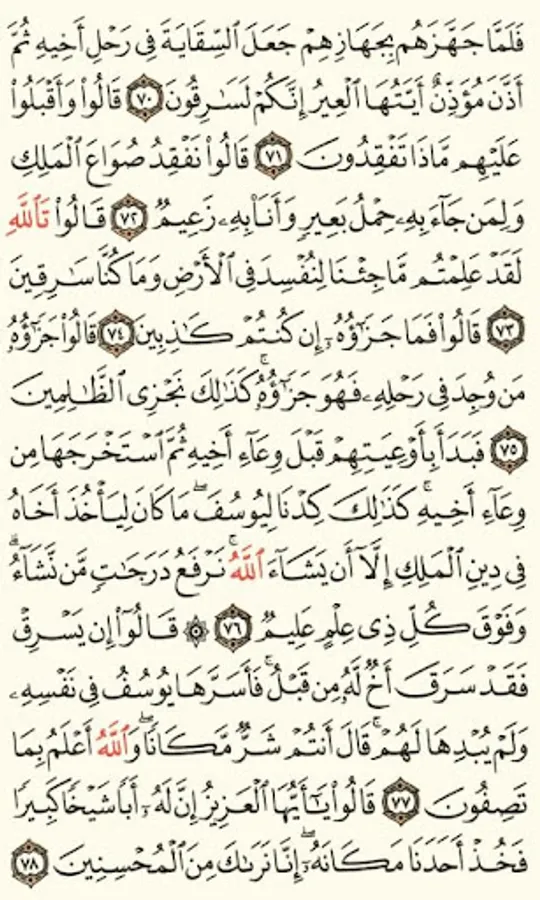 فَلَمَّا جَهَّزَهُم بِجَهَازِهِمْ جَعَلَ ٱلسِّقَايَةَ فِى رَحْلِ أَخِيهِ ثُمَّ
أَذَّنَ مُؤَذِّنٌ أَيَّتُهَا ٱلْعِيرُ إِنَّكُمْ لَسَـٰرِقُونَ ٧٠ قَالُوا۟ وَأَقْبَلُوا۟
عَلَيْهِم مَّاذَا تَفْقِدُونَ ٧١ قَالُوا۟ نَفْقِدُ صُوَاعَ ٱلْمَلِكِ
وَلِمَن جَآءَ بِهِۦ حِمْلُ بَعِيرٍ وَأَنَا۠ بِهِۦ زَعِيمٌ ٧٢ قَالُوا۟ تَٱللَّهِ
لَقَدْ عَلِمْتُم مَّا جِئْنَا لِنُفْسِدَ فِى ٱلْأَرْضِ وَمَا كُنَّا سَـٰرِقِينَ
٧٣ قَالُوا۟ فَمَا جَزَٰٓؤُهُۥٓ إِن كُنتُمْ كَـٰذِبِينَ ٧٤ قَالُوا۟ جَزَٰٓؤُهُۥ
مَن وُجِدَ فِى رَحْلِهِۦ فَهُوَ جَزَٰٓؤُهُۥ ۚ كَذَٰلِكَ نَجْزِى ٱلظَّـٰلِمِينَ
٧٥ فَبَدَأَ بِأَوْعِيَتِهِمْ قَبْلَ وِعَآءِ أَخِيهِ ثُمَّ ٱسْتَخْرَجَهَا مِن
وِعَآءِ أَخِيهِ ۚ كَذَٰلِكَ كِدْنَا لِيُوسُفَ ۖ مَا كَانَ لِيَأْخُذَ أَخَاهُ
فِى دِينِ ٱلْمَلِكِ إِلَّآ أَن يَشَآءَ ٱللَّهُ ۚ نَرْفَعُ دَرَجَـٰتٍ مَّن نَّشَآءُ ۗ
وَفَوْقَ كُلِّ ذِى عِلْمٍ عَلِيمٌ ٧٦ ۞ قَالُوٓا۟ إِن يَسْرِقْ
فَقَدْ سَرَقَ أَخٌ لَّهُۥ مِن قَبْلُ ۚ فَأَسَرَّهَا يُوسُفُ فِى نَفْسِهِۦ
وَلَمْ يُبْدِهَا لَهُمْ ۚ قَالَ أَنتُمْ شَرٌّ مَّكَانًا ۖ وَٱللَّهُ أَعْلَمُ بِمَا
تَصِفُونَ ٧٧ قَالُوا۟ يَـٰٓأَيُّهَا ٱلْعَزِيزُ إِنَّ لَهُۥٓ أَبًا شَيْخًا كَبِيرًا
فَخُذْ أَحَدَنَا مَكَانَهُۥٓ ۖ إِنَّا نَرَىٰكَ مِنَ ٱلْمُحْسِنِينَ ٧٨